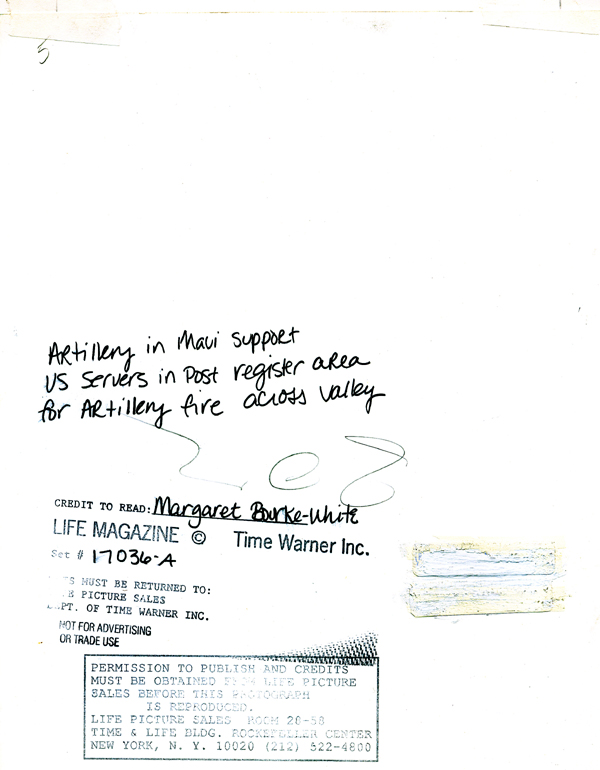 5
Artillery in Maui support
US Servers in Post register area
for Artillery fire across valley
CREDIT TO READ: Margaret Bourke-White
LIFE MAGAZINE © Time Warner Inc.
Set # 17036-A
S MUST BE RETURNED TO:
E PICTURE SALES
PT. OF TIME WARNER INC.
NOT FOR ADVERTISING
OR TRADE USE
PERMISSION TO PUBLISH AND CREDITS
MUST BE OBTAINED FROM LIFE PICTURE
SALES BEFORE THIS PHOTOGRAPH
IS REPRODUCED.
LIFE PICTURE SALES ROOM 28-58
TIME & LIFE BLDG. ROCKEFELLER CENTER
NEW YORK, N. Y. 10020 (212) 522-4800